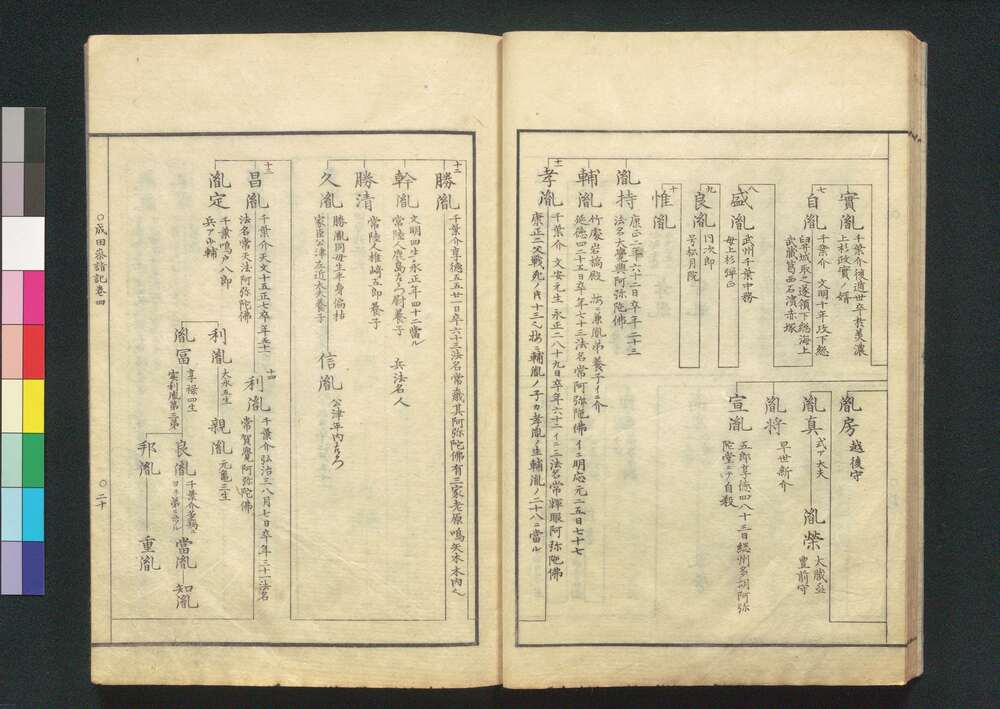 實胤
千葉介後遁世卒於美濃
上杉政實ノ婿
七
自胤
千葉介 文明十年攻下総
臼井城取之遂領下総海上
武蔵葛西石濱赤塚
八
盛胤
武州千葉中務
母上杉弾正
九
良胤
同次郎
号松月院
十
惟胤
胤持
康正二年六十二日卒年二十三
法名大覺興阿弥陀佛
輔胤
延徳四二十五日卒年七十三法名常阿弥陀佛イニ明応元二五日七十七
十一
孝胤
千葉介 文安元生永正二八十九日卒年六十二イニ三法名常輝眼阿弥陀佛
胤房
越後守
胤真
式ア大夫
胤榮
大蔵丞
豊前守
胤将
早世新介
宣胤
五郎享徳四八十三日総州多胡阿弥
陀堂ニテ自殺
十二
勝胤
千葉介享徳五五廿一日卒六十三法名常歳其阿弥陀佛有三家老原鳴矢木木内也
幹胤
文明四生永正年四十二當ル
常陸人鹿島 尉養子 兵法名人
勝清
常陸人椎崎五郎養子
久胤
勝胤同母生半身偏枯
家臣公津左近大夫養子
信胤
公津年内
十三
昌胤
千葉介天文十五正七卒年五十一
法名常天法阿弥陀佛
胤定
千葉鳴戸八郎
兵ア少輔
十四
利胤
千葉介弘治三八月七日卒年三十一法名
常賀覺阿弥陀佛
利胤
大永五生
親胤
元亀三生
胤冨
享禄四生
実利胤第三弟
良胤
千葉介
當胤
知胤
邦胤
重胤
○成田参詣記巻四
○二十